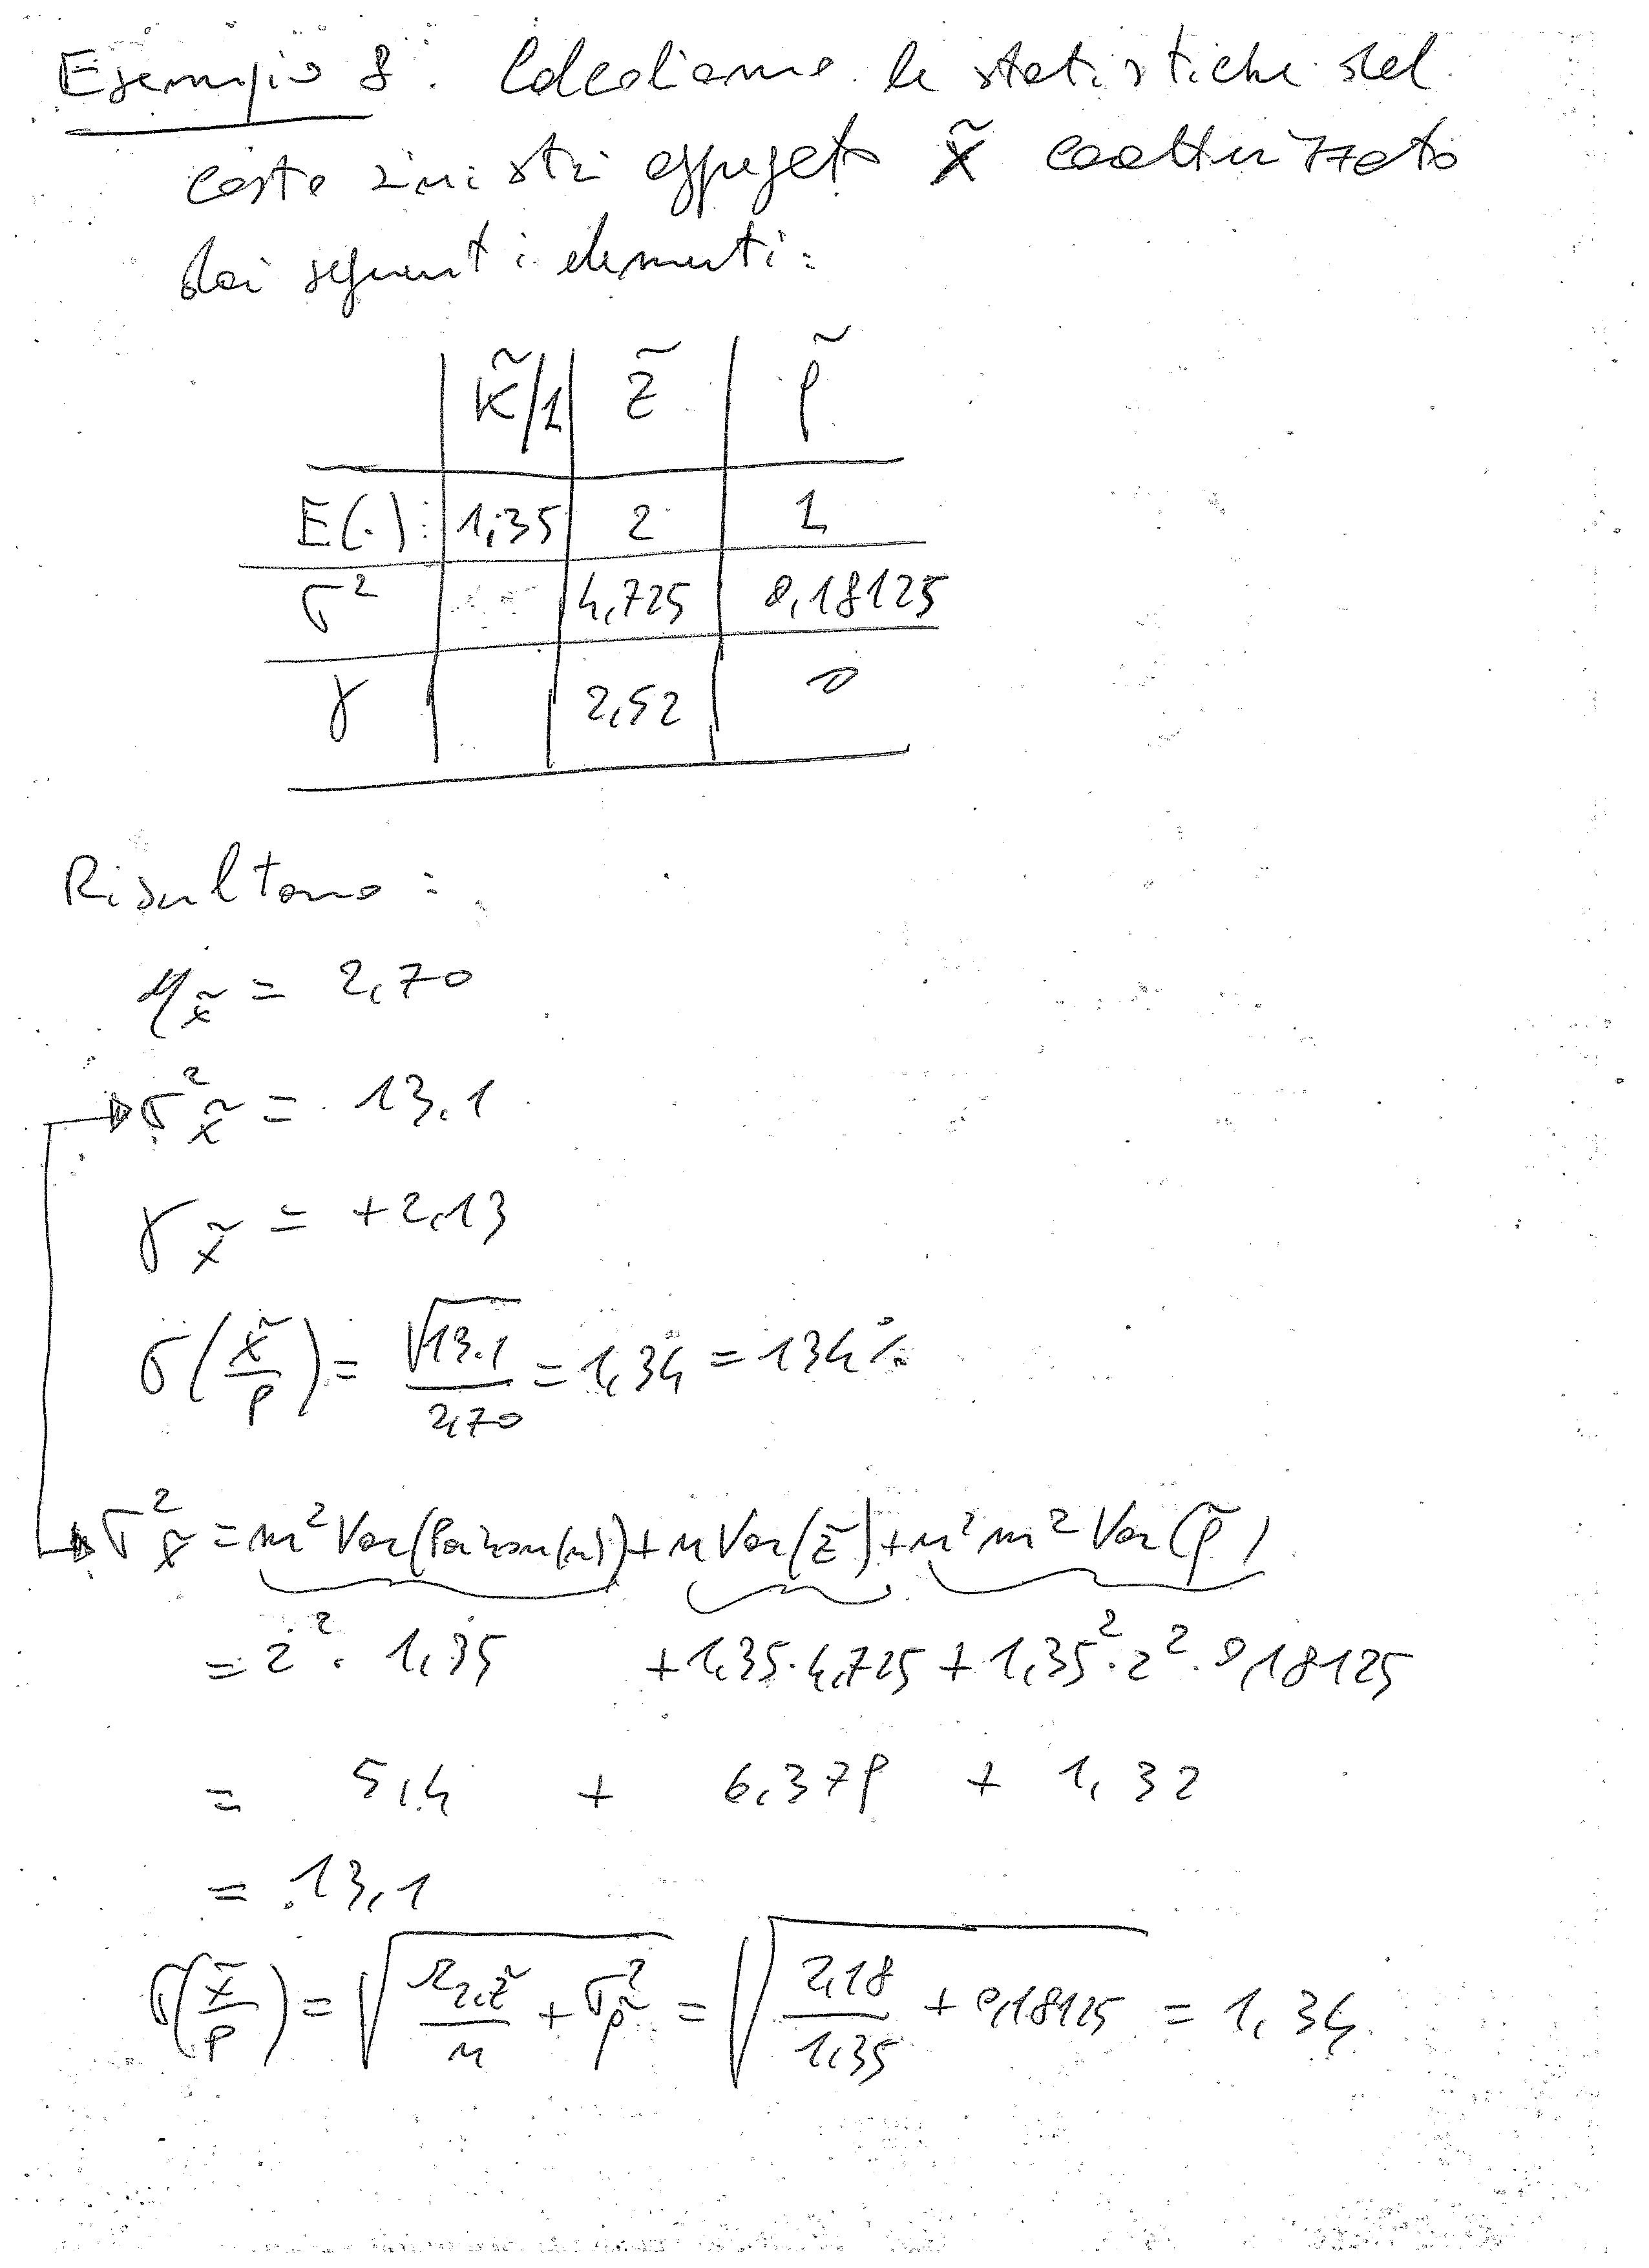 Esempio 8. Calcoliamo le statistiche del
costo sinistri aggregato X̃ caratterizzato
dai seguenti elementi:
K̃/1 Z̃ ρ̃
E(.): 1,35 2 1
σ² 4,725 0,18125
γ 2,52 0
Risultano:
μ_x̃ = 2,70
σ²_x̃ = 13.1
γ_x̃ = +2,13
σ(x̃/P) = √13.1 / 2,70 = 1,34 = 134%
σ²_x̃ = m² Var(Poisson(n)) + n Var(z̃) + n² m² Var(ρ̃)
= 2² · 1,35 + 1,35 · 4,725 + 1,35² · 2² · 0,18125
= 5,4 + 6,379 + 1,32
= 13,1
σ(x̃/P) = √(r₂,z̃ / n + σ²_ρ̃) = √(2,18 / 1,35 + 0,18125) = 1,34